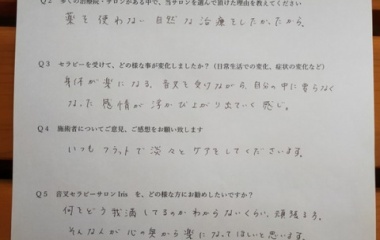 Q2 多くの治療院・サロンがある中で、当サロンを選んで頂けた理由を教えてください
薬を使わない自然な治療をしたかったから。
Q3 セラピーを受けて、どの様な事が変化しましたか?(日常生活での変化、症状の変化など)
身体が楽になる。音叉を受けながら、自分の中に要らなく
なった感情が浮かび上がり出ていく感じ。
Q4 施術者についてご意見、ご感想をお願い致します
いつもフラットで淡々とケアをしてくださいます。
Q5 音叉セラピーサロン Iris を、どの様な方にお勧めしたいですか?
何をどう我慢してるのかわからないくらい、頑張ってる。
そんな人が心の奥から楽になってほしいと思います。